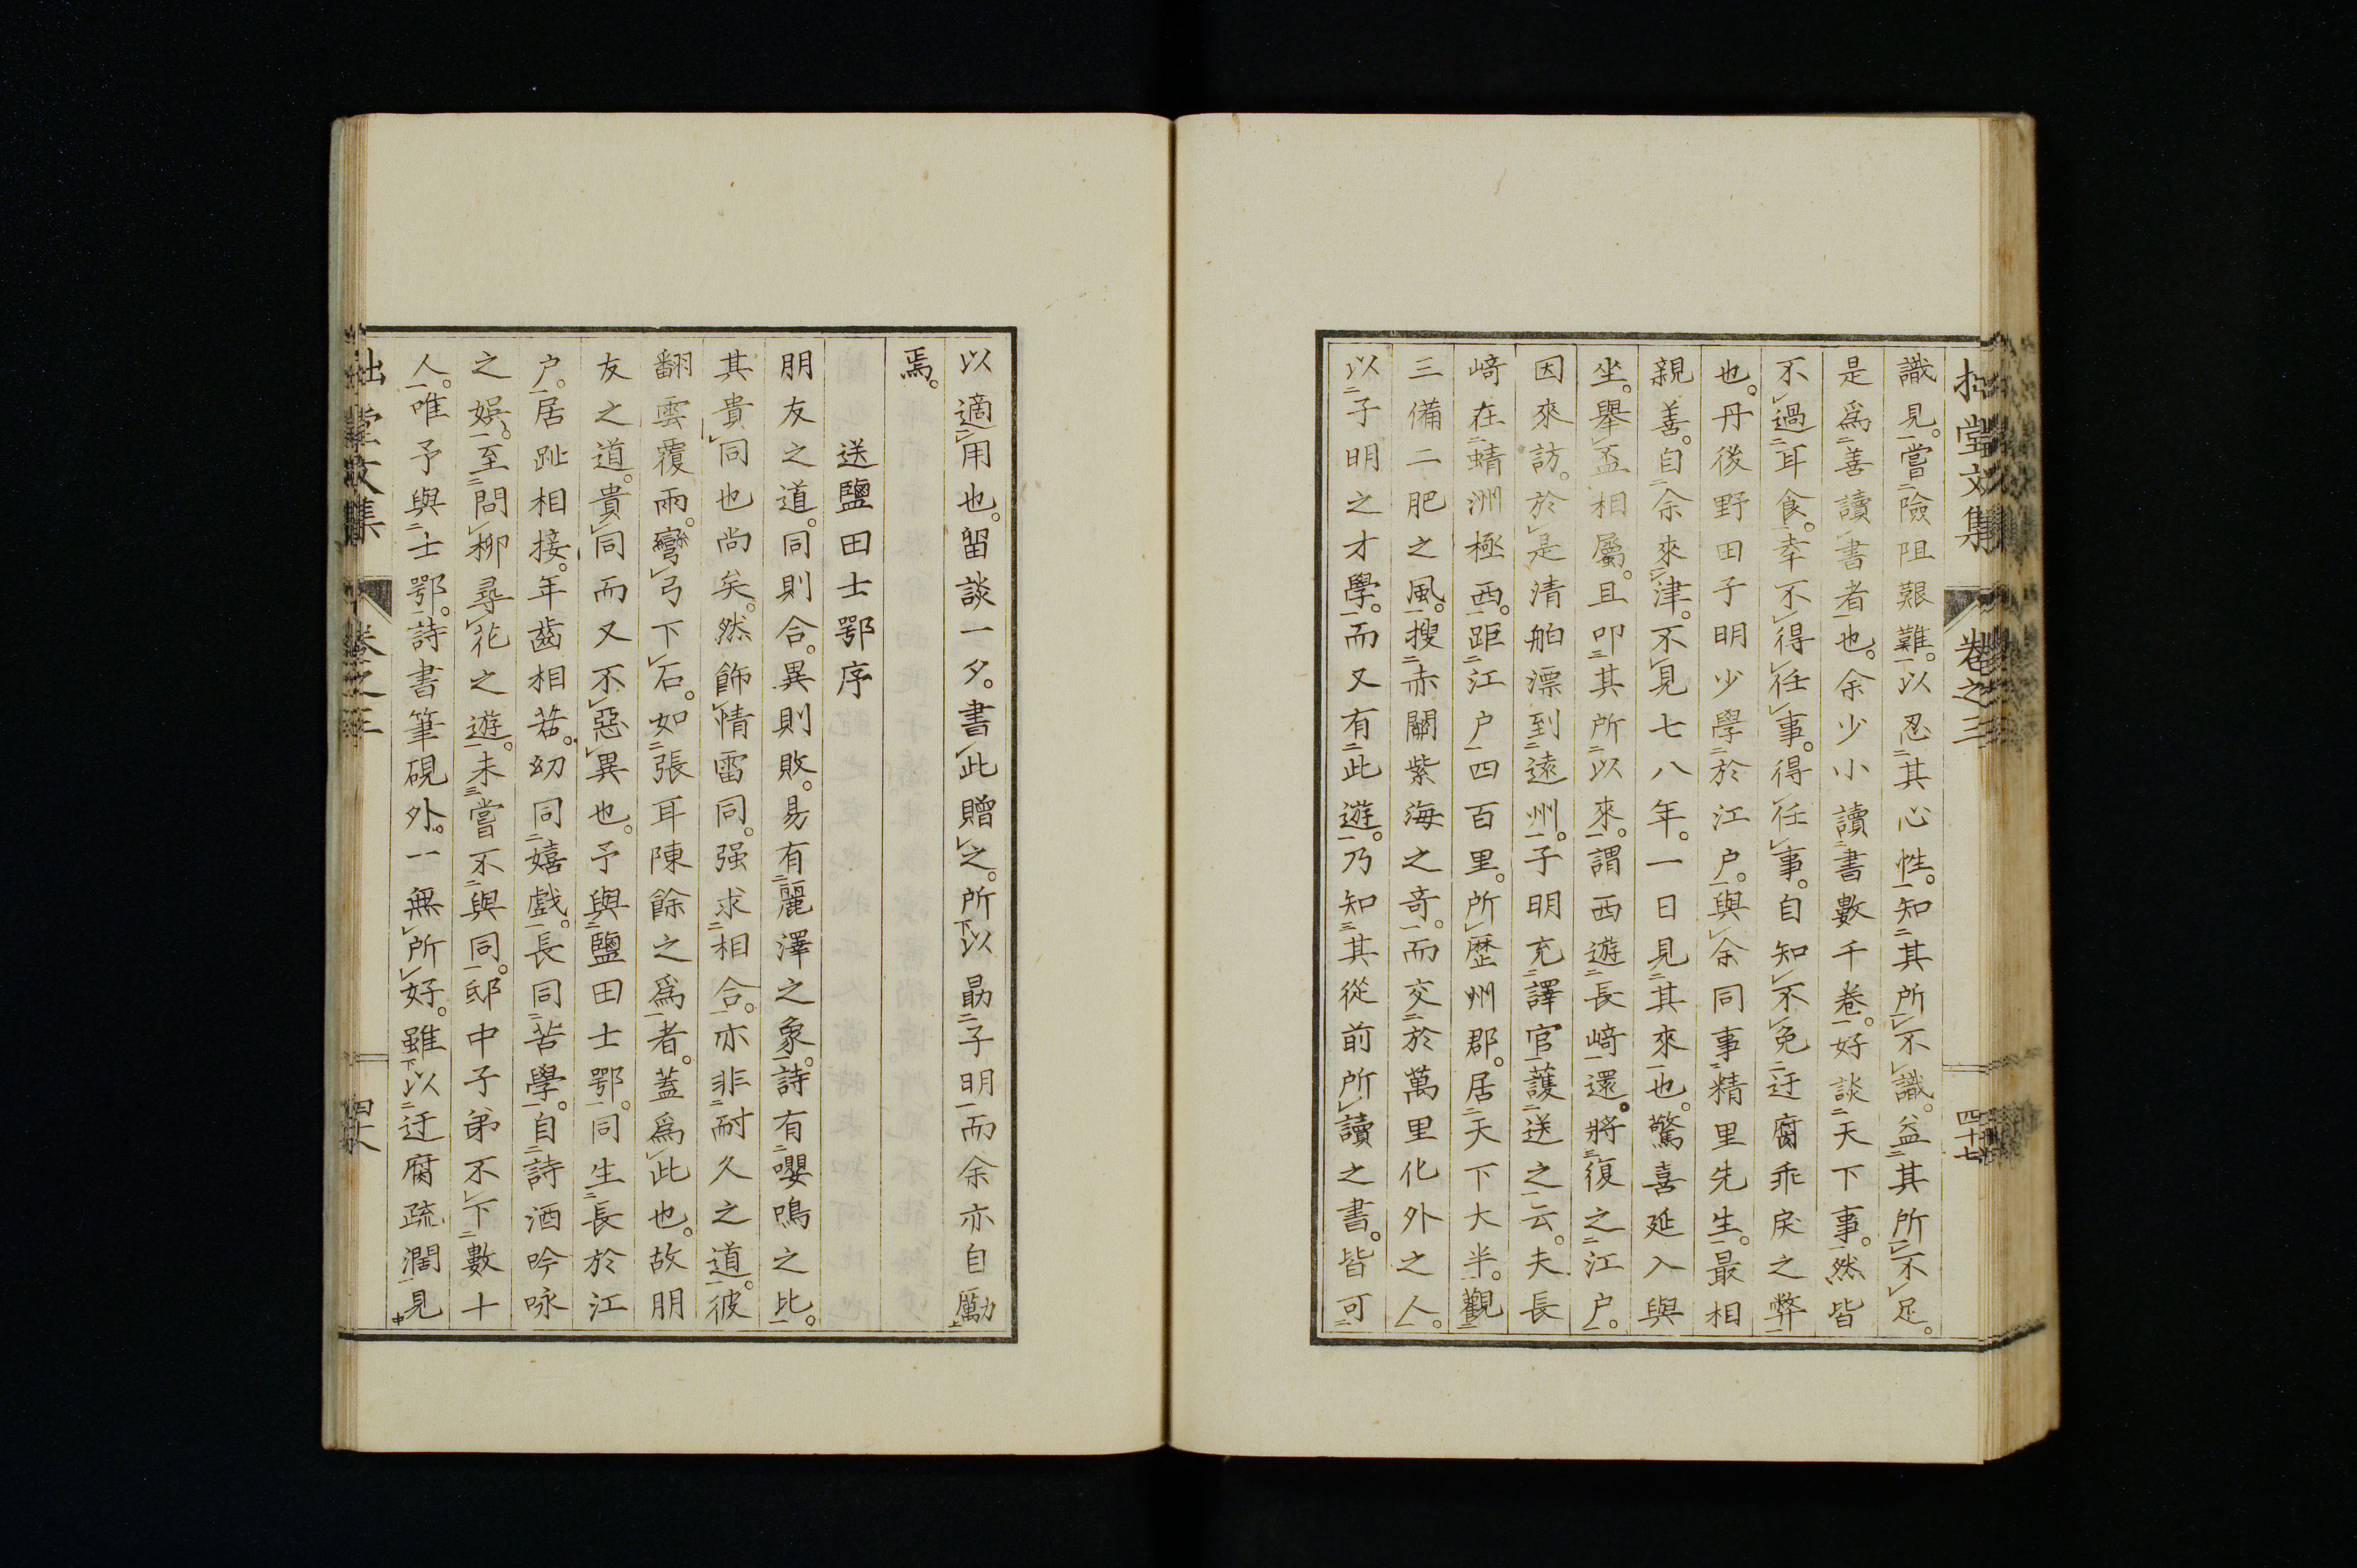 拙堂文集 卷之三 四十七
識見。嘗險阻艱難。以忍其心性。知其所不識。益其所不足。
是爲善讀書者也。余少小讀書數千卷。好談天下事。然皆
不過耳食。幸不得任事。得任事。自知不免迂腐乖戾之弊
也。丹後野田子明少學於江戶。與余同事精里先生。最相
親善。自余來津。不見七八年。一日見其來也。驚喜延入與
坐。舉盃相屬。且叩其所以來。謂西遊長崎還。將復之江戶。
因來訪。於是清舶漂到遠州。子明充譯官護送之云。夫長
崎在蜻洲極西。距江戶四百里。所歷州郡。居天下大半。觀
三備二肥之風。搜赤關紫海之奇。而交於萬里化外之人。
以子明之才學。而又有此遊。乃知其從前所讀之書。皆可
以適用也。留談一夕。書此贈之。所以勗子明而余亦自勵
焉。
送鹽田士鄂序
朋友之道。同則合。異則敗。易有麗澤之象。詩有嚶鳴之比。
其貴同也尚矣。然飾情雷同。强求相合。亦非耐久之道。彼
翻雲覆雨。彎弓下石。如張耳陳餘之爲者。蓋爲此也。故朋
友之道。貴同而又不惡異也。予與鹽田士鄂。同生長於江
戶。居趾相接。年齒相若。幼同嬉戲。長同苦學。自詩酒吟咏
之娛。至問柳尋花之遊。未嘗不與同。邸中子弟不下數十
人。唯予與士鄂。詩書筆硯外。一無所好。雖以迂腐疏濶見
拙堂文集 卷之三